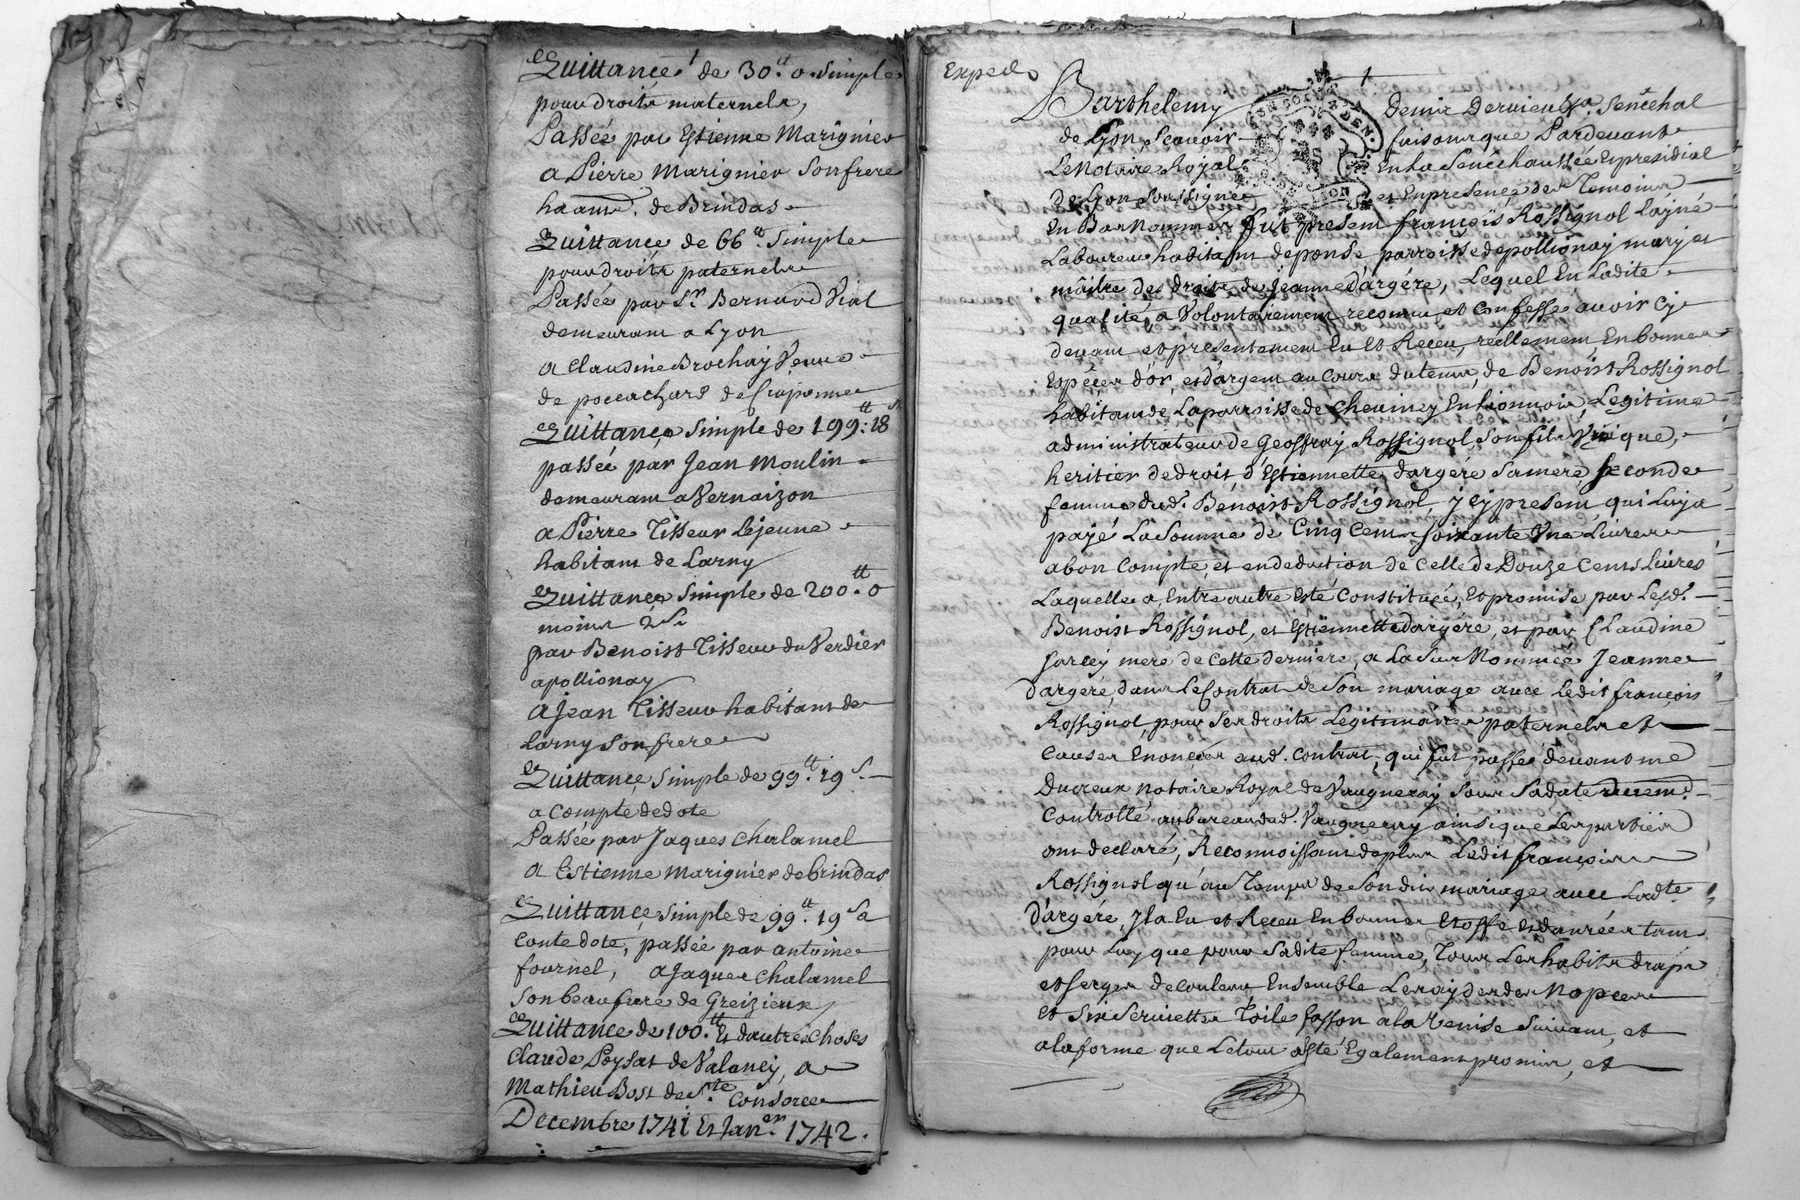 Quittance de 30.tt 0. simple
pour droits maternels,
Passée par Estienne Marignier
a Pierre Marignier son frere
haant. de Brindas
Quittance de 66tt. Simple
pour droits paternels
Passée par Sr. Bernard Vial
demeurant a Lyon
a Claudine Brochay Veuve
de poccachard de Craponne
Quittance simple de 199.tt: 18s
passée par Jean Moulin
demeurant a Vernaizon
a Pierre Tisseur Lejeune
habitant de Larny
Quittance simple de 200.tt 0
moins
par Benoist Tisseur du Verdier
a pollionay
a Jean Tisseur habitant de
Larny son frere
Quittance simple de 99.tt 19s.
a compte de dote
Passée par Jaques Chalamel
a Estienne Marignier de brindas
Quittance simple de 99.tt 19s a
conte dote, passée par antoine
fournel, a Jaques Chalamel
son beaufrere de Greizieux
Quittance de 100.tt Et dautres choses
Claude Peysat de Valancy, a
Mathieu Bost de Ste. Consorce
Decembre 1741 Et Janer. 1742.
Exped.
Barthelemy Denis Dervieu Sr. Senéchal
de Lyon, Scavoir faisons que Pardevant
Le Notaire Royal En La Senéchaussée Et presidial
de Lyon soussigné et En presence des Temoins
En Bas Nommés fut present françois Rossignol Laÿné
Laboureur habitant de ponse parroisse de pollionay mary et
maître des droits de Jeanne dargére, Lequel En Ladite
qualité, a Volontairement reconnu et Confessé avoir Cy
devant et presentement Eu Et Receu, reellement En bonnes
Espéces dor, et dargent au Cours du tems, de Benoist Rossignol
habitant de La parroisse de Cheviney En Lionnois, Legitime
administrateur de Geoffray Rossignol, son fils Unique,
heritier de droit, d'Estiennette dargére sa mere, seconde
femme dud. Benoist Rossignol, Icy present, qui Luy a
payé La Somme de Cinq Cents soixante Une Livres
a bon Compte, et en deduction de Celle de Douze Cents Livres
Laquelle a Entre autre Esté Constituée, Et promise par Led.
Benoist Rossignol, et Estiennette dargére, et par Claudine
Jarcey mere de Cette derniere, a La Sus Nommée Jeanne
dargére, dans Le Contrat de Son mariage avec Ledit françois
Rossignol, pour ses droits Legitimaires paternels et
Causes Enoncées aud. Contrat, qui fut passé devant me
Ducreux Notaire Royal de Vaugneray sous Sa date duemt.
Controllé au bureau dud. Vaugneray ainsi que Les parties
ont declaré, Reconnoissant de plus Ledit françois
Rossignol qu'au Temps de Son dit mariage avec Ladte.
D'argére, Il a Eu et Receu En bonnes Etoffe et danrées tant
pour Luy que pour Sadite femme, Tous Les habits draps
et serges de couleurs, Ensemble
Et Six Serviettes Toile fasson a la Venise Suivant, et
a la forme que Le tout a Esté Egalement promis, et